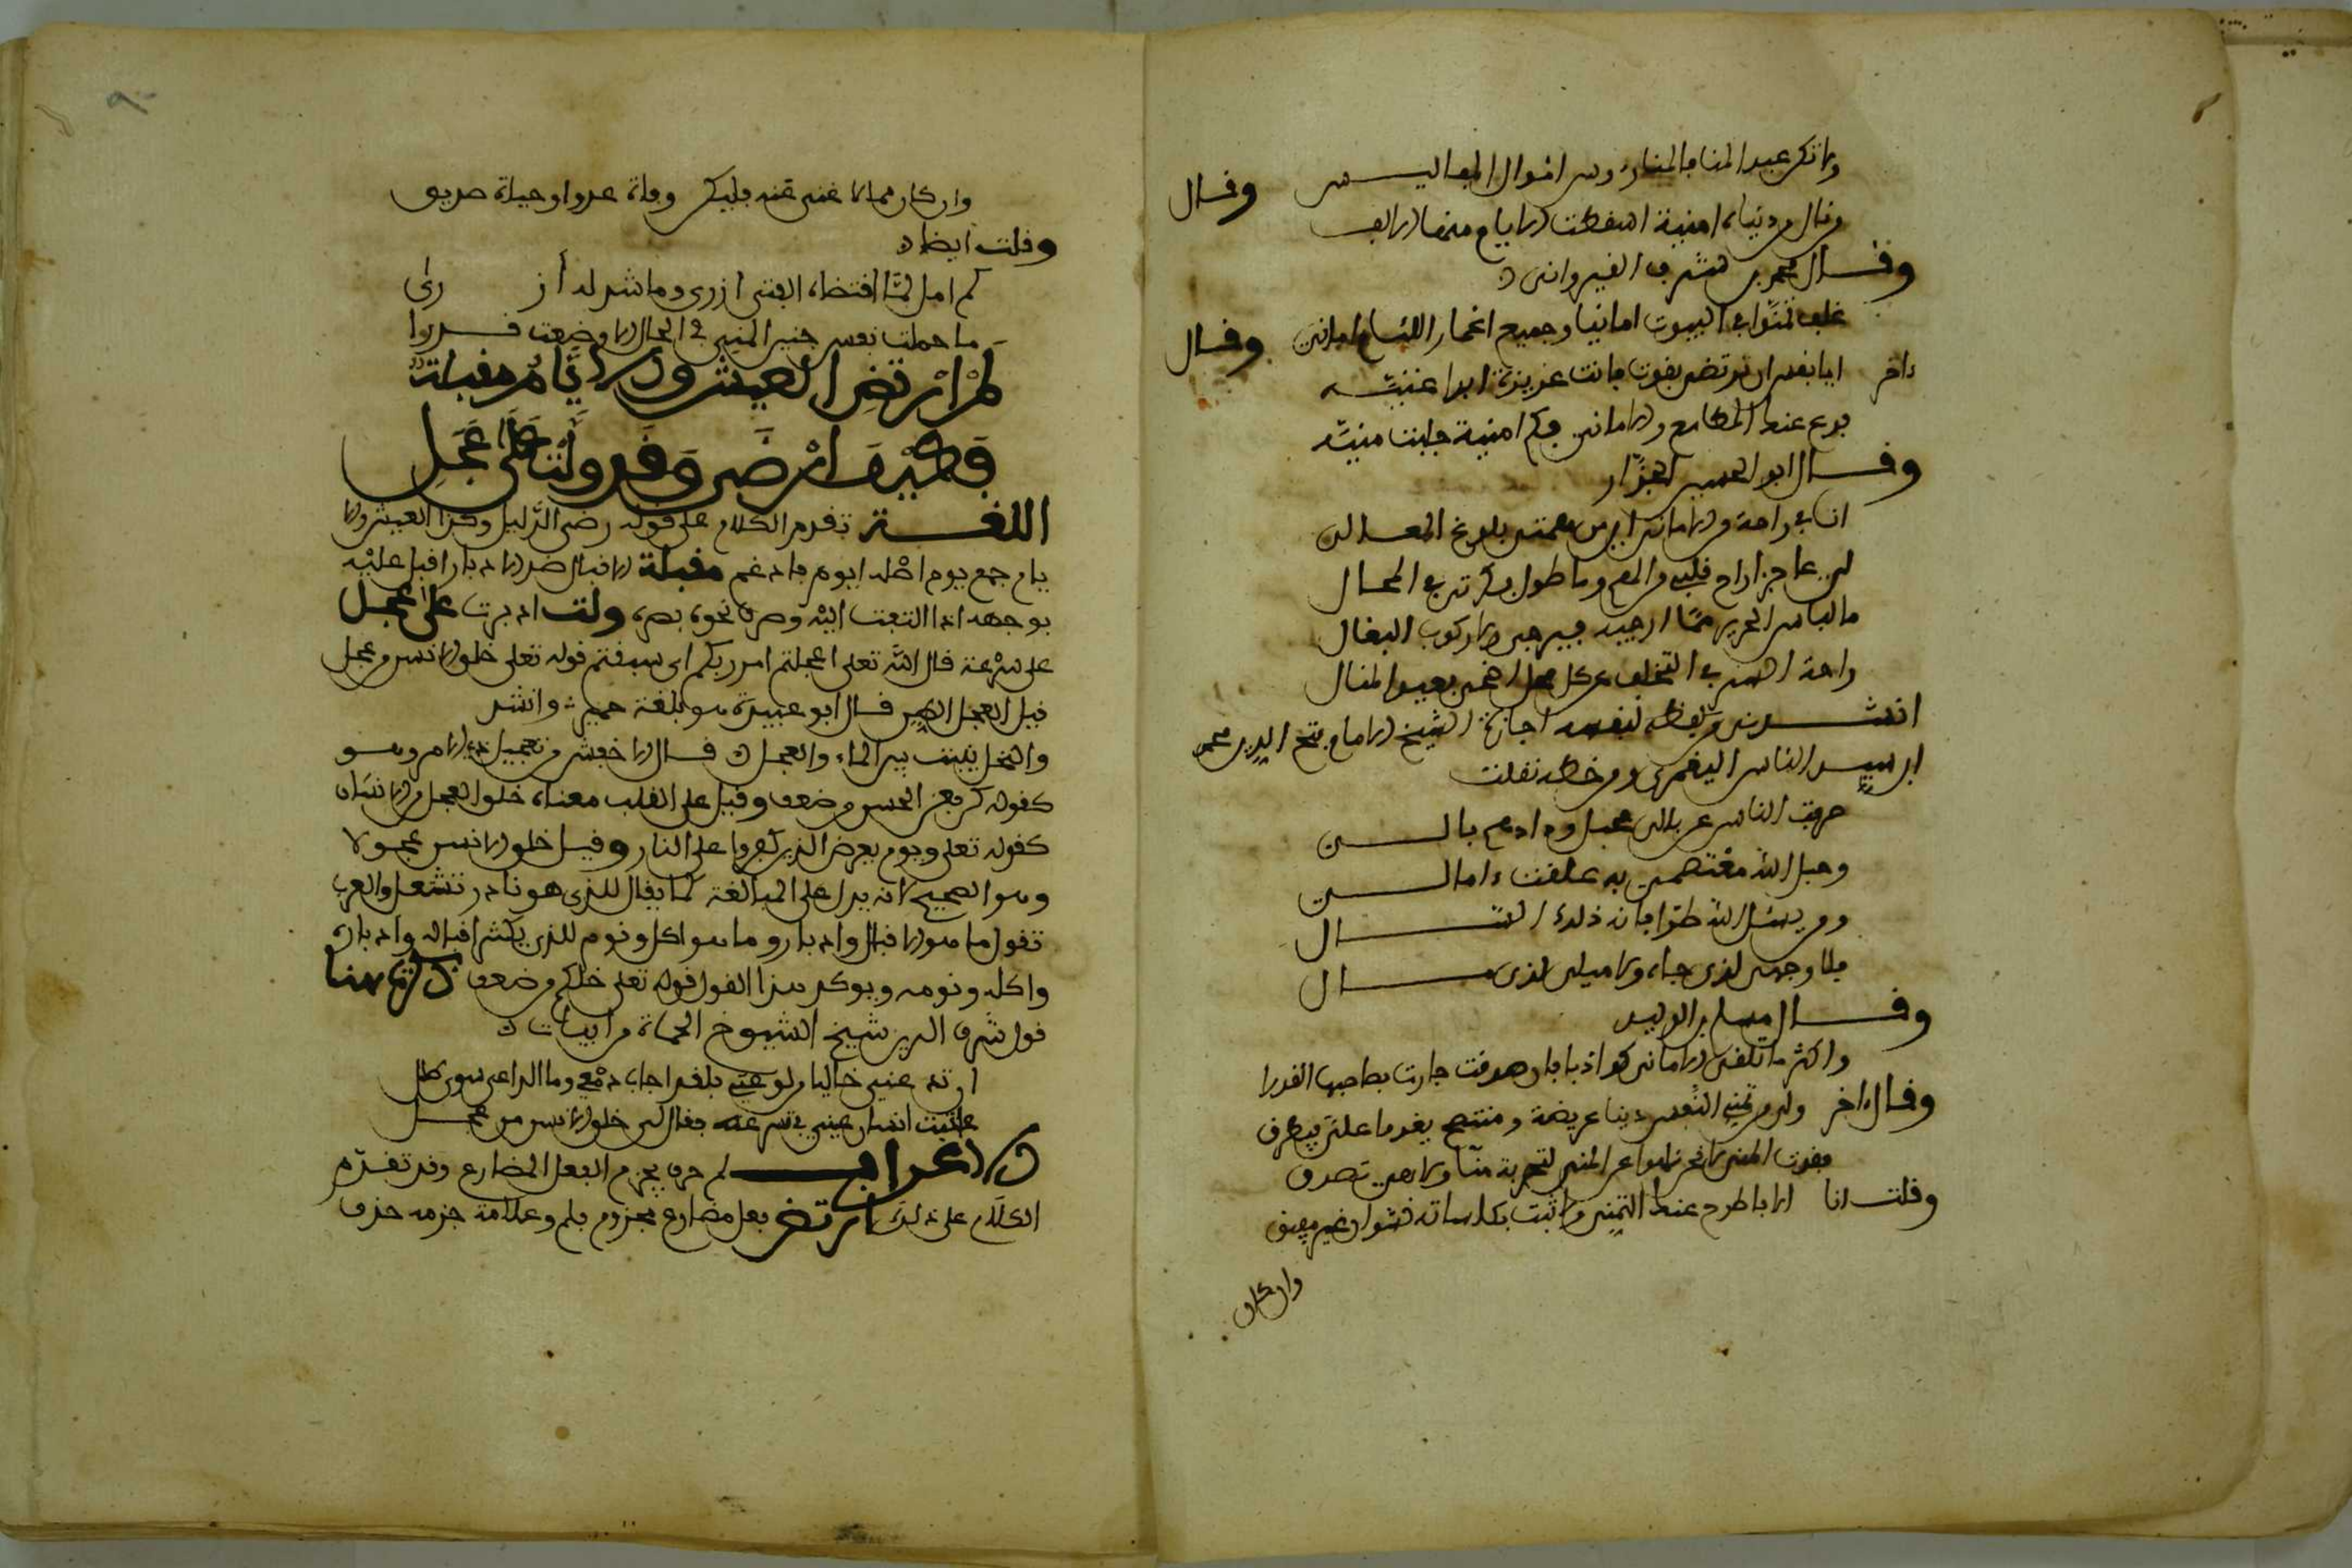 ولا تكن عبد المنا فالمنا رءوس اموال المفاليس وقال
وقال من دنياه امنية اسقطت الايام منها الالف
وقال محمد بن شرف القيرواني
غلف تمنوا في البيوت امانيا وجميع اعمار اللئام اماني وقال
ءاخر ايا نفس ان ترتضى بقوت فانت عزيزة ابدا غنيه
دع عنك المطامع والاماني فكم امنية جلبت منيه
وقال ابو الحسين الجزار
انا في راحة من الاماني اين من همتي بلوغ المعالي
لى عاجز اراح قلبي من الهم وما طول فكرتي في المحال
ما لباس الحرير مما ارجيه فيرجى ولا ركوب البغال
راحة السر في التخلف عن كل محل اضحى بعيد المنال
انشدني من لفظه لنفسه اجازة الشيخ الامام فتح الدين محمد
ابن سيد الناس اليعمري ومن خطه نقلت
صرفت الناس عن بالي فحبل ودادهم بالي
وحبل الله معتصمي به علقت ءامالي
ومن يسئل الله طرا فانه ذلك السال
فلا وجهى لذي جاه ولا ميلى لذى مال
وقال مسلم بن الوليد
واكثر ما تلقى الاماني كواذبا فان صدقت جازت بصاحبها القدرا
وقال ءاخر ولى من تمني النفس دنيا عريضة ومنتجع يغدوا على ويطرف
وقلت انا الا فاطرح عنك التمني ولا تبت بكاساته نشوان غير مفيق
وان كان
وان كان مما لا غنى عنه فليكن وفاة عدو او حياة صديق
وقلت ايضا
كم امل لما اقتضاه الفتى ازرى وما شد له أزرى
ما حملت نفس جنين المنى في الحال الا وضعت فسروا
لم ارتض العيش والايام مقبلة
فكيف ارضى وقد ولت على عجل
اللغة تقدم الكلام على قوله رضى الذليل وكذا العيش والا
يام جمع يوم اصله ايوام فادغم مقبلة الاقبال ضد الادبار اقبل عليه
بوجهه اذا التفت اليه وصرف نحوه بصره ولت ادبرت على عجل
على سرعة قال الله تعلى اعجلتم امر ربكم اى سبقتم قوله تعلى خلق الانسن من عجل
قيل العجل الطين قال ابو عبيدة هو بلغة حمير وانشد
والنخل ينبت بين الماء والعجل قال الاخفش من تعجيل في الامر وهو
كقوله كن فيكون الحسن من ضعف وقيل على القلب معناه خلق العجل من الانسان
كقوله تعلى ويوم يعرض الذين كفروا على النار وقيل خلق الانسن عجولا
وهو الصحيح لانه يدل على المبالغة كما يقال للذى هو نار تشتعل والعرب
تقول ما هو الا اقبال وادبار وما هو الا اكل ونوم للذى يكثر اقباله وادباره
واكله ونومه ويوكد هذا القول قوله تعلى خلقكم من ضعف
قول شرف الدين شيخ الشيوخ الحماة من ابيات
ان تر عيني خاليا من لوعتي فلقد اجاب دمعى وما الداعى سوى طلل
عاتبت انسان عيني في تسرعه فقال لى خلق الانسن من عجل
الاعراب لم حرف يجزم الفعل المضارع وقد تقدم
الكلام على ذلك ارتض فعل مضارع مجزوم بلم وعلامة جزمه حذف